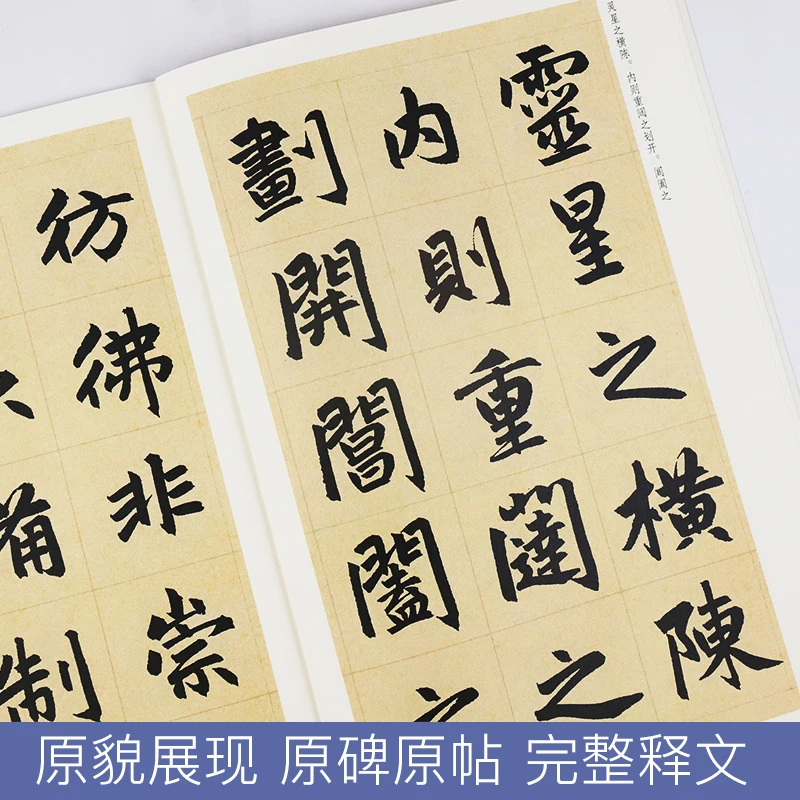 灵星之横陈。内则重闼之划开。阊阖之
靈星之横陳
内則重闥之
劃開閶闔之
彷彿非崇
備制
原貌展现 原碑原帖 完整释文